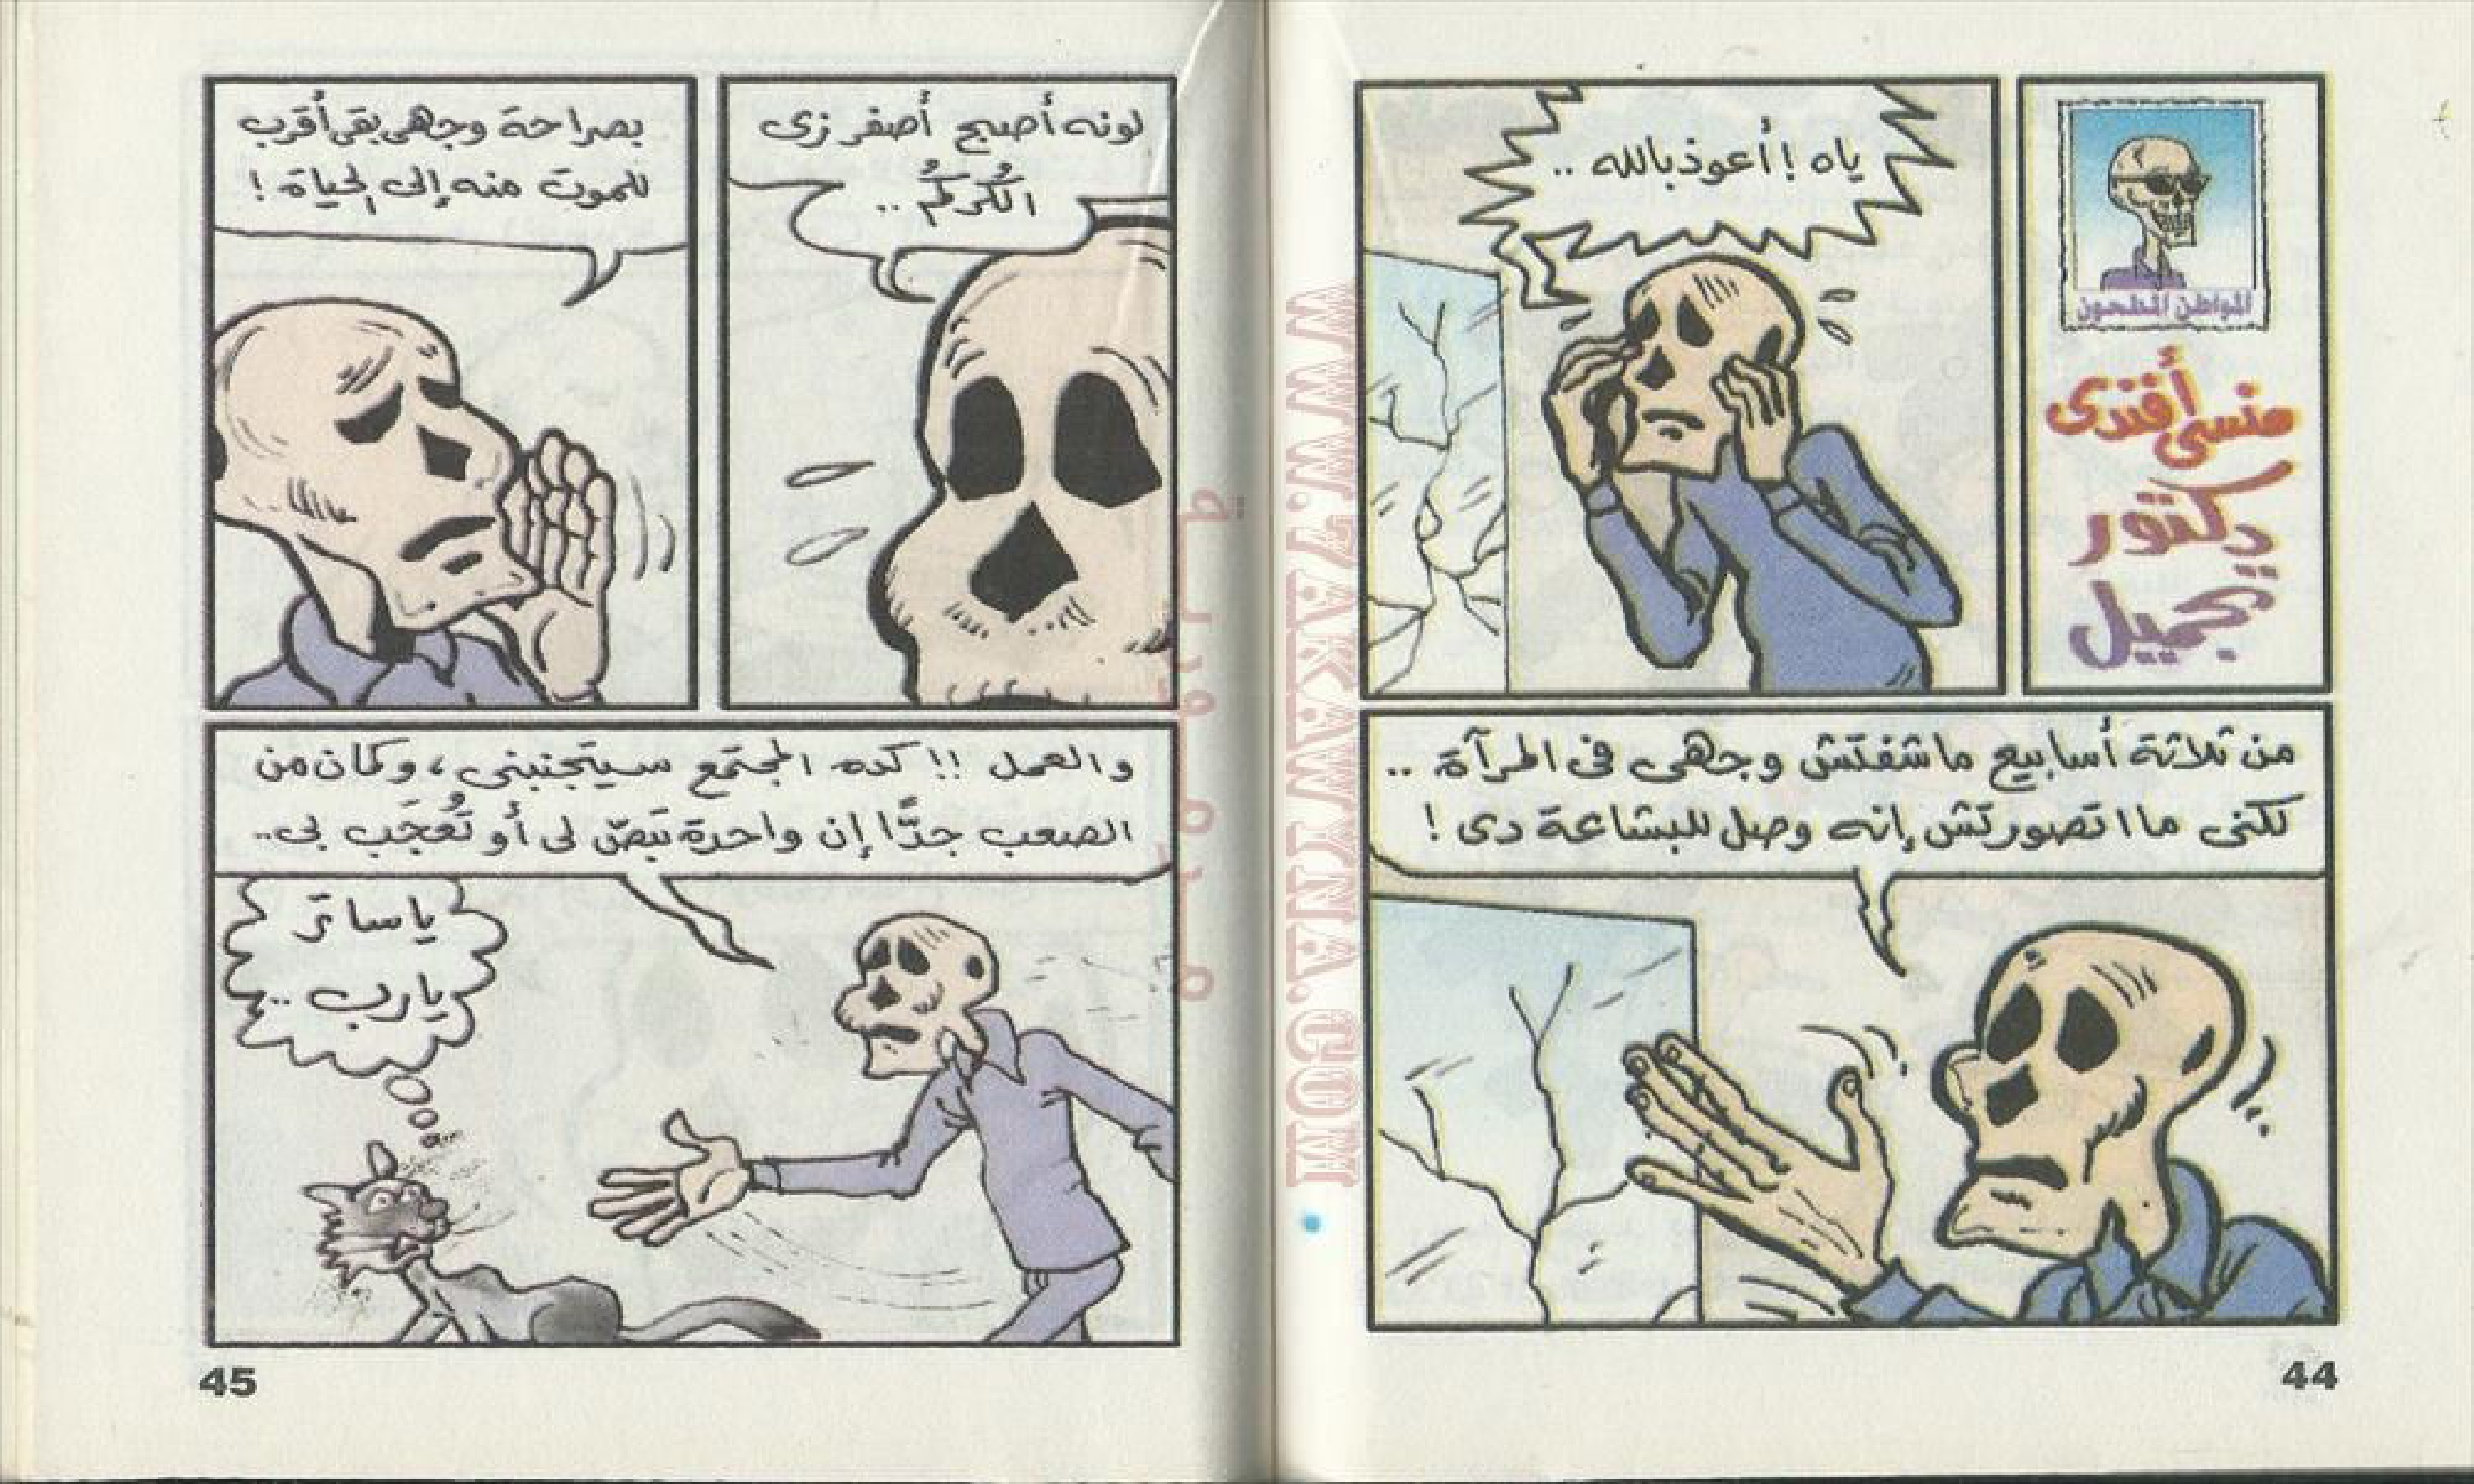 المواطن المطحون
منسى أفندى
دكتور
تجميل
ياه ! أعوذ بالله ..
من ثلاثة أسابيع ما شفتش وجهى فى المرآة ..
لكنى ما اتصورتش إنه وصل للبشاعة دى !
44
لونه أصبح أصفر زى
الكُركُم ..
بصراحة وجهى بقى أقرب
للموت منه إلى الحياة !
والعمل !! كده المجتمع سيتجنبنى ، وكان من
الصعب جدًّا إن واحدة تبصّ لى أو تُعجَب بى ..
يا ساتر
يارب ..
45